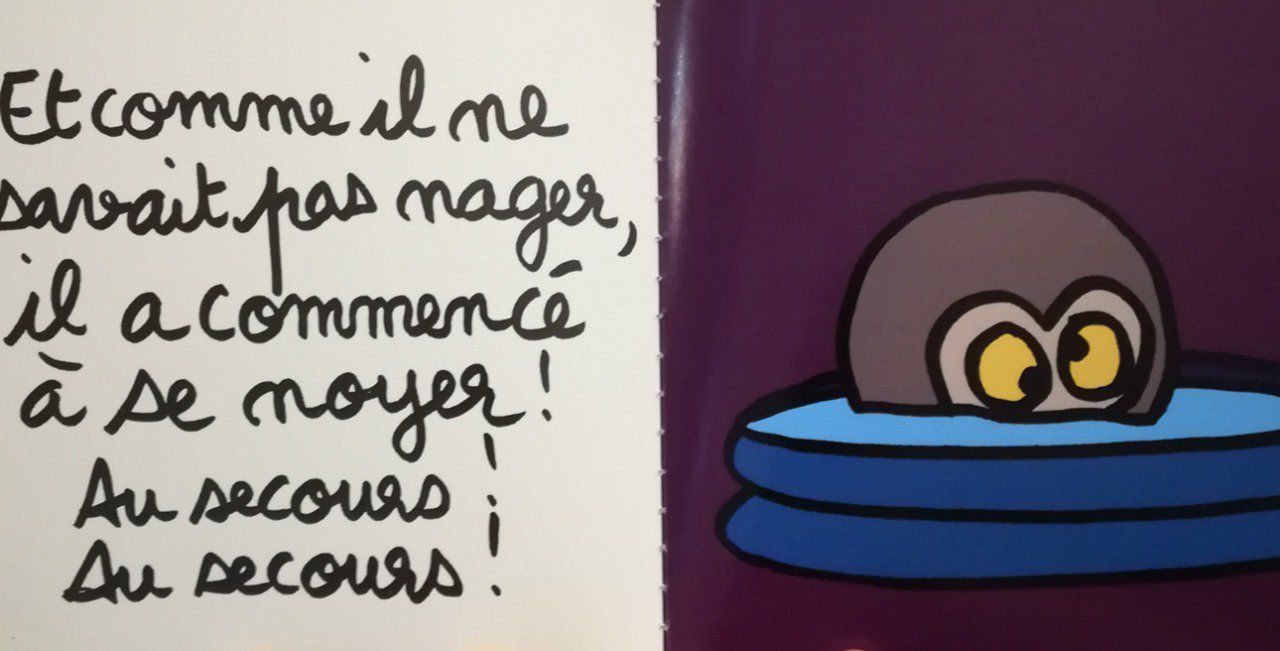 Et comme il ne
savait pas nager,
il a commencé
à se noyer !
Au secours !
Au secours !